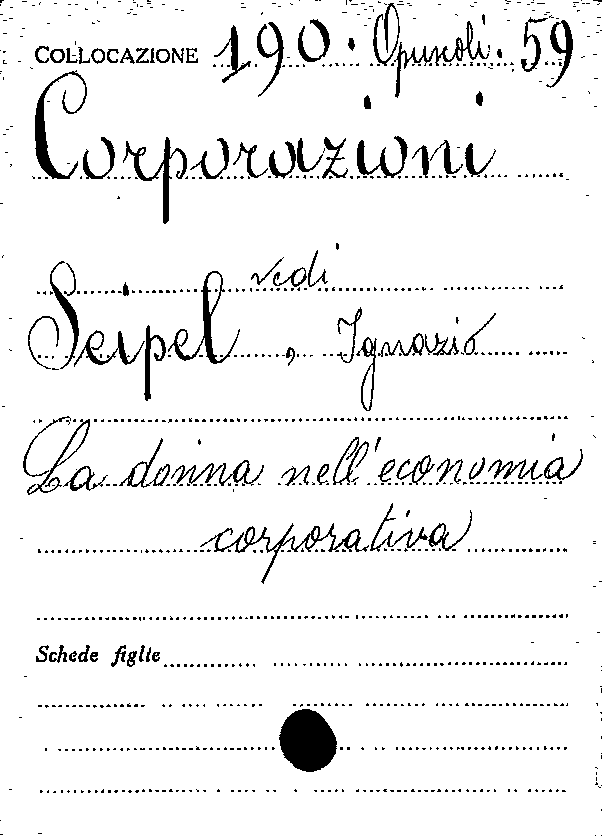 COLLOCAZIONE 190. Opuscoli. 59
Corporazioni
vedi
Seipel, Ignazio
La donna nell'economia
corporativa
Schede figlie